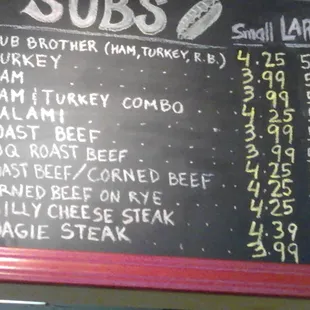 SUBS Small LAR
UB BROTHER (HAM, TURKEY, R.B.) 4.25 5
URKEY 3.99 5
AM 3.99
AM & TURKEY COMBO 4.25
ALAMI 3.99
OAST BEEF 3.99
BQ ROAST BEEF 4.25
OAST BEEF/CORNED BEEF 4.25
RNED BEEF ON RYE 4.25
ILLY CHEESE STEAK 4.39
AGIE STEAK 3.99